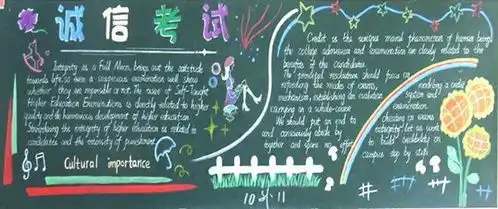 诚信考试
Integrity is a Full Moon, brings out the attitude
towards life, so even a suspicious examination will show
whether they are responsible or not. The issue of Self-Taught
Higher Education Examinations is directly related to higher
quality and the harmonious development of higher education
Strengthening the integrity of higher education is related to
candidates and the intensity of punishment
Cultural importance
Credit is the serious moral phenomenon of human being
the college admission and examination are closely related to the
benefits of the candidates.
The principal resolutions should focus on
refreshing the modes of exams, modifying a order
mechanism, establishing an evaluation system and
carrying on a whole-course examination
We should put an end to cheating in exams
and consciously abide by integrity! Let us work
together and spare no effort to build credibility on
campus step by step
10 11